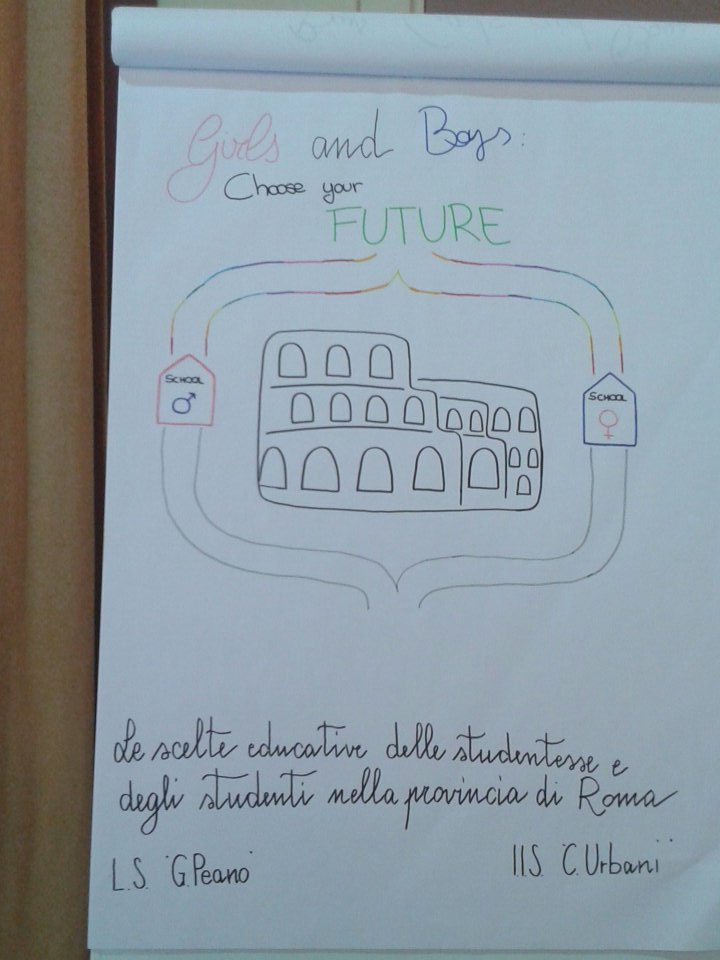 Girls and Boys:
Choose your
FUTURE
SCHOOL
SCHOOL
Le scelte educative delle studentesse e
degli studenti nella provincia di Roma
L.S. "G.Peano"
I.I.S. "C.Urbani"